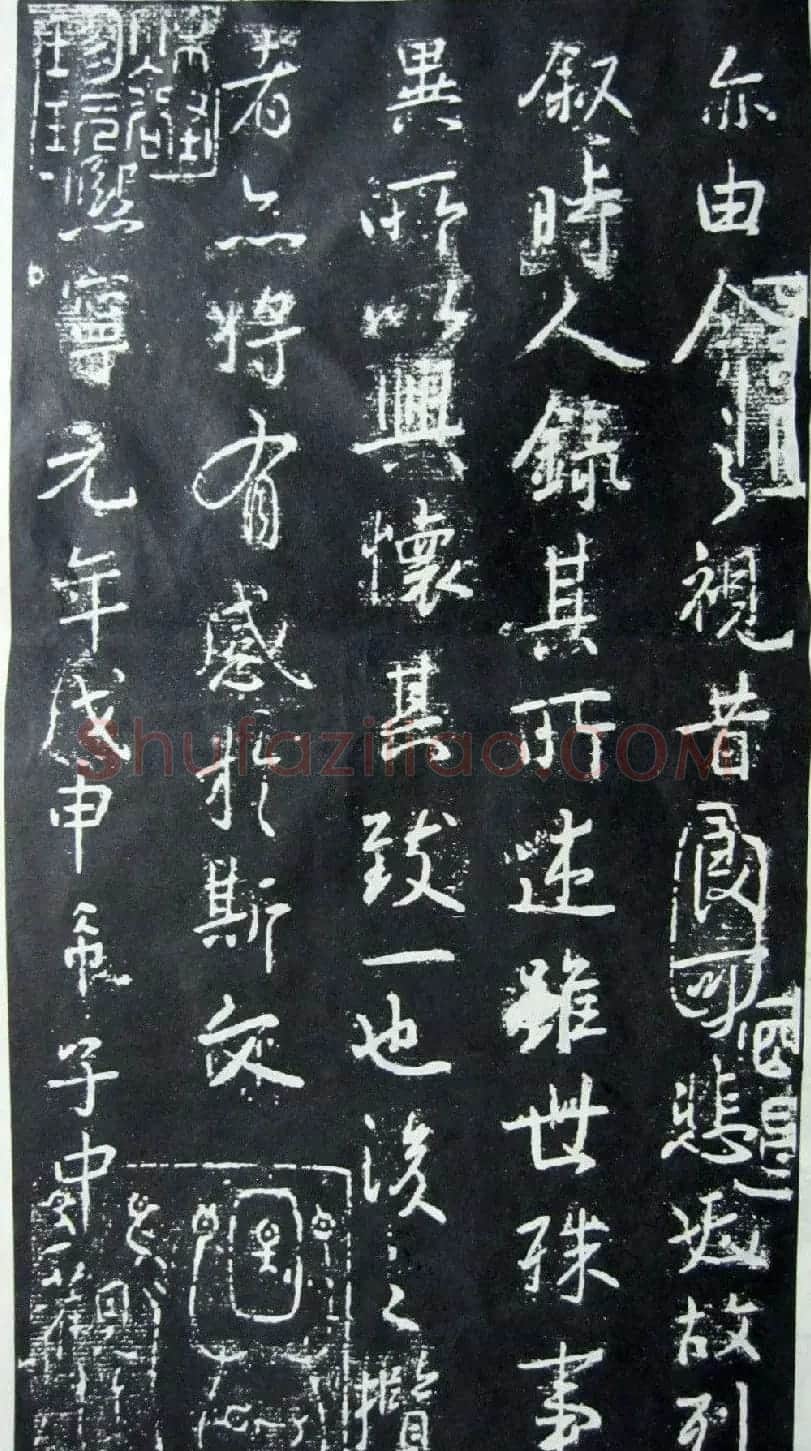 亦由今之視昔良可悲夫故列
叙時人錄其所述雖世殊事
異所以興懷其致一也後之攬
者亦將有感於斯文
熙寧元年戊申
子中
觀
Shufaziliao.COM